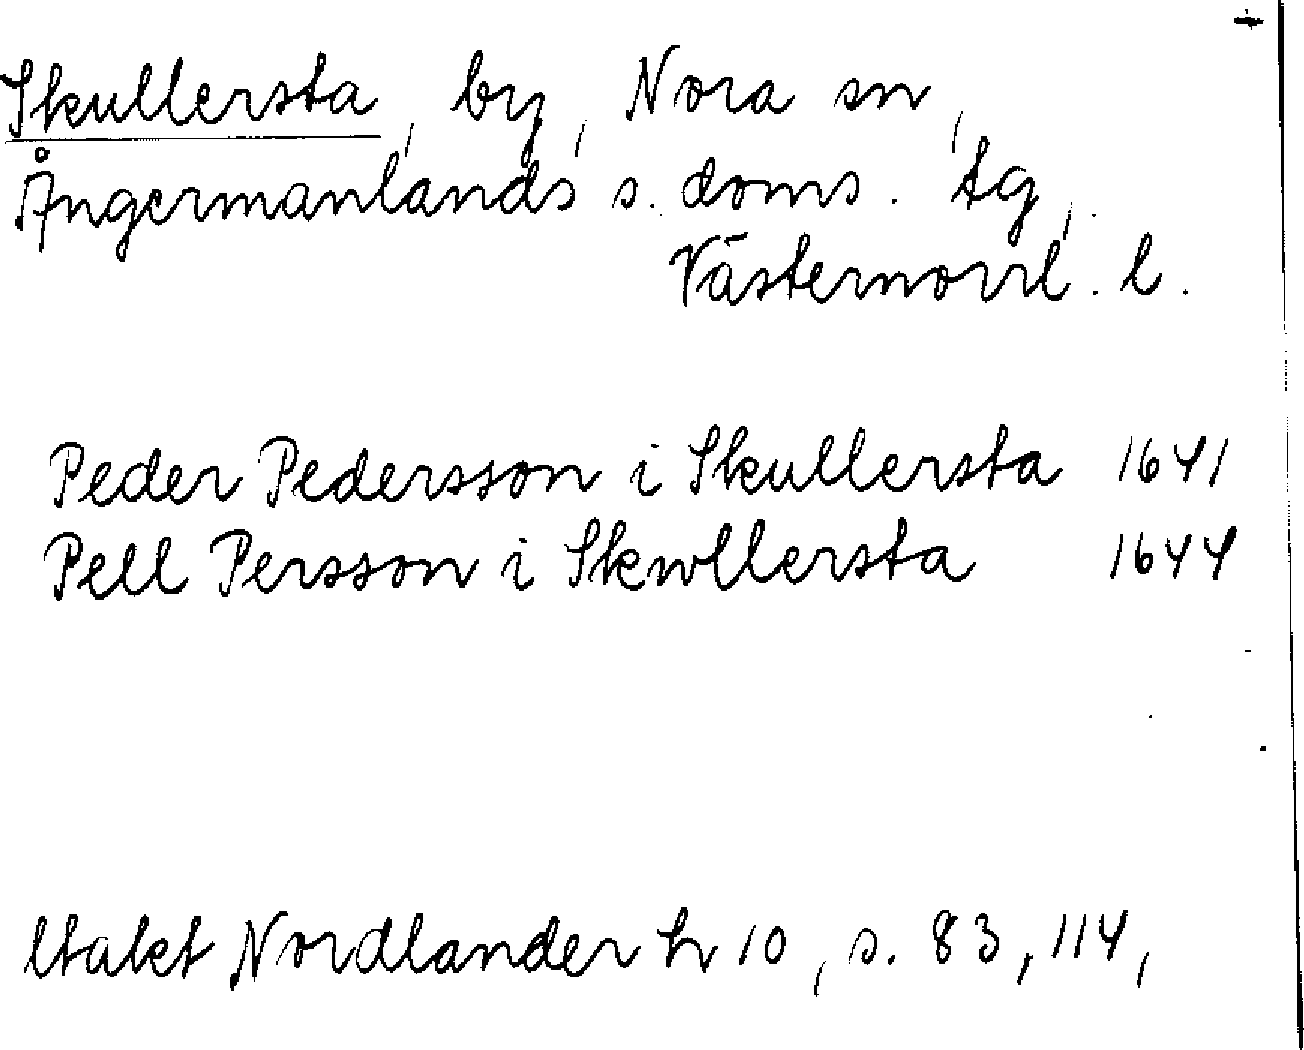 Skullersta, by, Nora sn,
Ångermanlands s. doms. tg,
Västernorrl. l.
Peder Pedersson i Skullersta 1641
Pell Persson i Skwllersta 1644
Nordlander h 10, s. 83, 114,